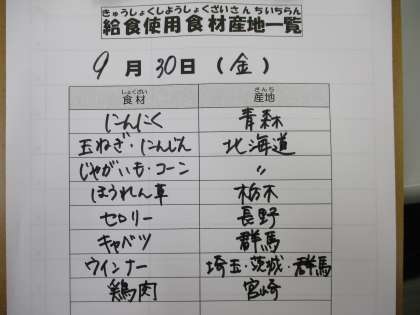 きゅうしょくしようしょくざいさんちいちらん
給食使用食材産地一覧
9月30日(金)
しょくざい さんち
食材 産地
にんにく 青森
玉ねぎ・にんじん 北海道
じゃがいも・コーン 〃
ほうれん草 栃木
セロリー 長野
キャベツ 群馬
ウインナー 埼玉・茨城・群馬
鶏肉 宮崎